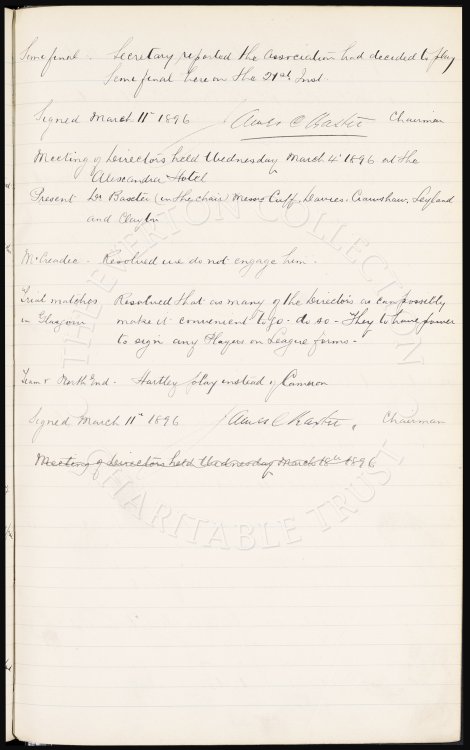 Semi final :- Secretary reported the Association had decided to play
Semi final here on the 21st Inst.
Signed March 11th 1896 James C Baxter Chairman
Meeting of Directors held Wednesday March 4th 1896 at the
Alexandra Hotel
Present Dr Baxter (in the chair) Messrs Cuff, Davies, Crawshaw, Leyland
and Clayton
McCreadie - Resolved we do not engage him.
Trial matches Resolved that as many of the Directors as can possibly
in Glasgow make it convenient to go - do so - They to have power
to sign any Players on League forms -
Team v North End - Hartley play instead of Cameron
Signed March 11th 1896 James C Baxter, Chairman
Meeting of Directors held Wednesday March 18th 1896
THE EVERTON COLLECTION
CHARITABLE TRUST